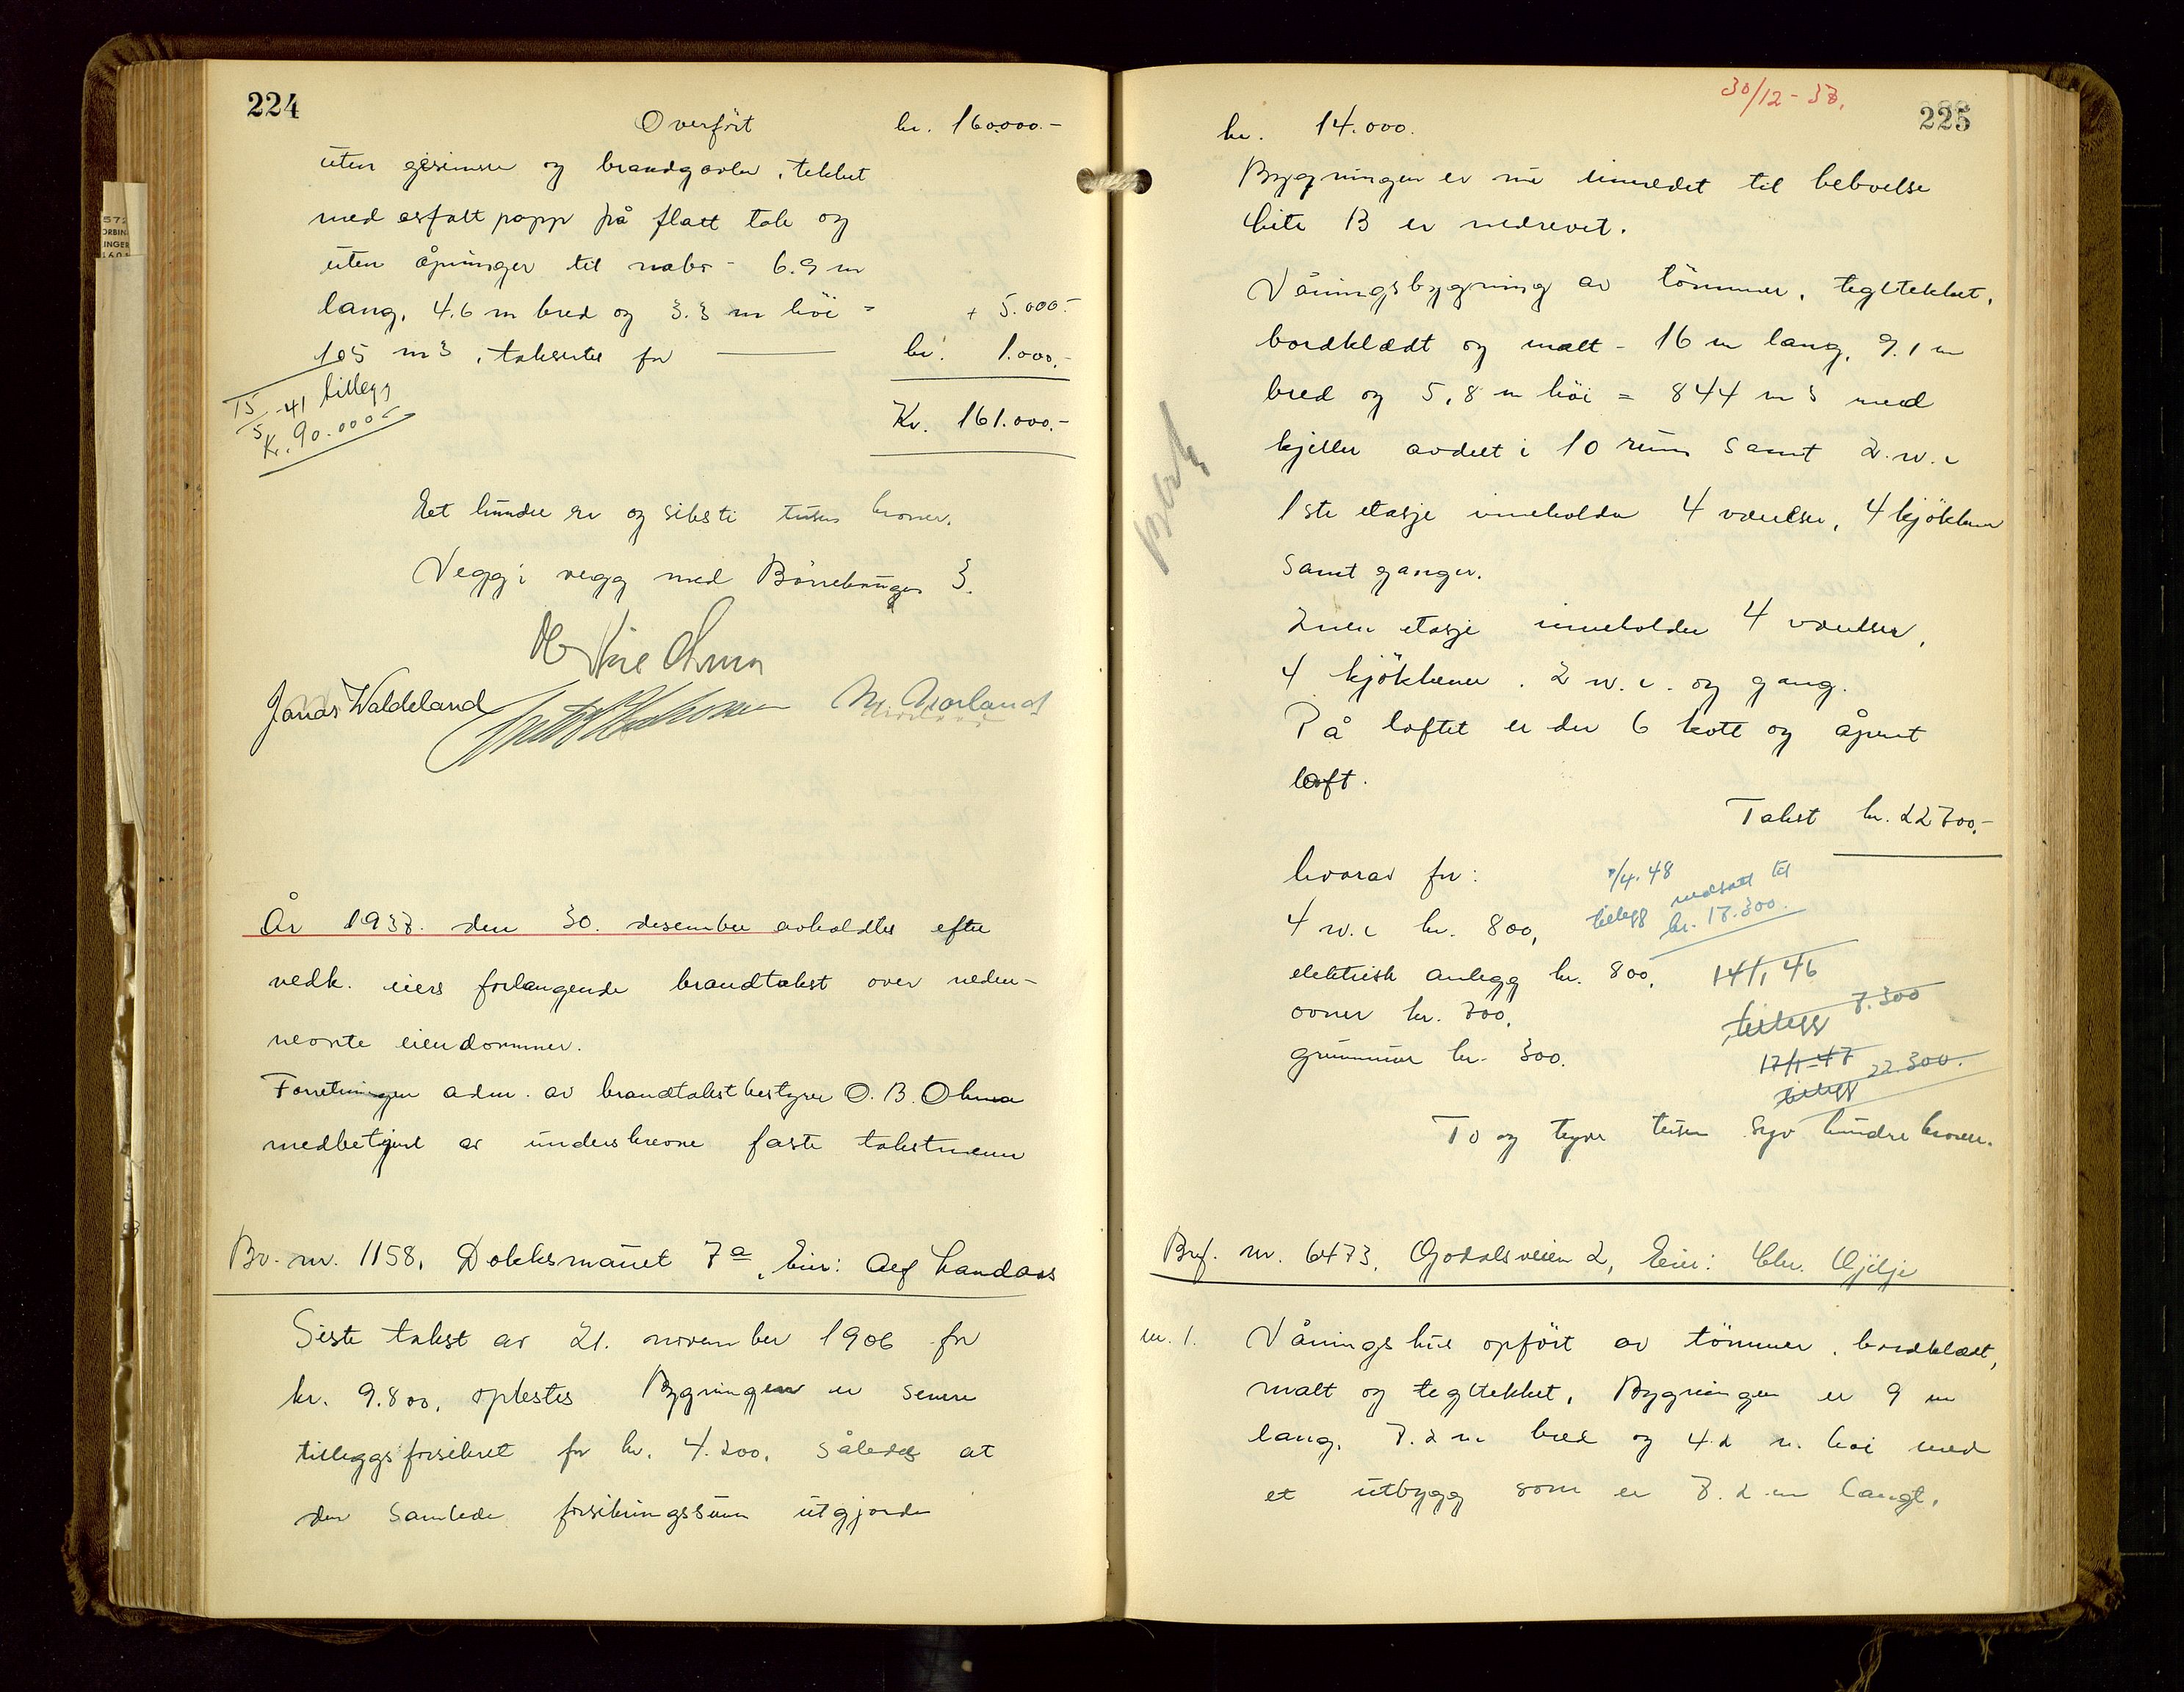 224
Overført kr. 160.000.-
uten gesimser og brandgavler, tekket
med asfaltpapp på flatt tak og
uten åpninger til nabo - 6.9 m
lang, 4.6 m bred og 3.3 m höi =
+ 5.000.-
105 m3, takseres for — kr. 1.000.-
15/5-41 tillegg
Kr. 90.000
Kr. 161.000.-
Et hundre en og seksti tusen kroner.
Vegg i vegg med Börrehaugen 3.
Jonas Waldeland
År 1937. den 30. desember avholdtes efter
vedk. eiers forlangende brandtakst over neden-
nevnte eiendommer.
Forretningen adm. av brandtakstbestyrer O. B. Ohma
medbetjent av underskrevne faste takstmenn
Br. nr. 1158, Dokksmauet 7a, Eier: Alf Landaas
Siste takst av 21. november 1906 for
kr. 9.800, oplestes Bygningen er senere
tilleggsforsikret for kr. 4.200. således at
den samlede forsikringssum utgjorde
30/12-37.
225
kr. 14.000.
Bygningen er nu innredet til bebvelse
Lite B er nedrevet.
Våningsbygning av tömmer, tegltekket,
bordklædt og malt - 16 m lang, 9.1 m
bred og 5,8 m höi = 844 m3 med
kjeller avdelt i 10 rum samt 2 w.c
1ste etasje inneholder 4 værelser, 4 kjökkener
samt ganger.
2nen etasje inneholder 4 værelser,
4 kjökkener. 2 w.c. og gang.
På loftet er der 6 kott og åpent
loft.
Takst kr. 22700,-
hvorav for:
7/4.48
tillegg nedsatt til
kr. 17.300.
4 w.c kr. 800,
elektrisk anlegg kr. 800, 14/1 46
tillegg 7.300
ovner kr. 700,
grunnmur kr. 300.
17/1-47
tillegg 22.300.
To og tyve tusen syv hundre kroner.
Brf. nr. 6473, Godalsveien 2, Eier: Chr. Gjilje
nr. 1. Våningshus opfört av tömmer, bordklædt,
malt og tegltekket, Bygningen er 9 m
lang, 7.2 m bred og 4.2 m. höi med
et utbygg som er 7.2 m langt,